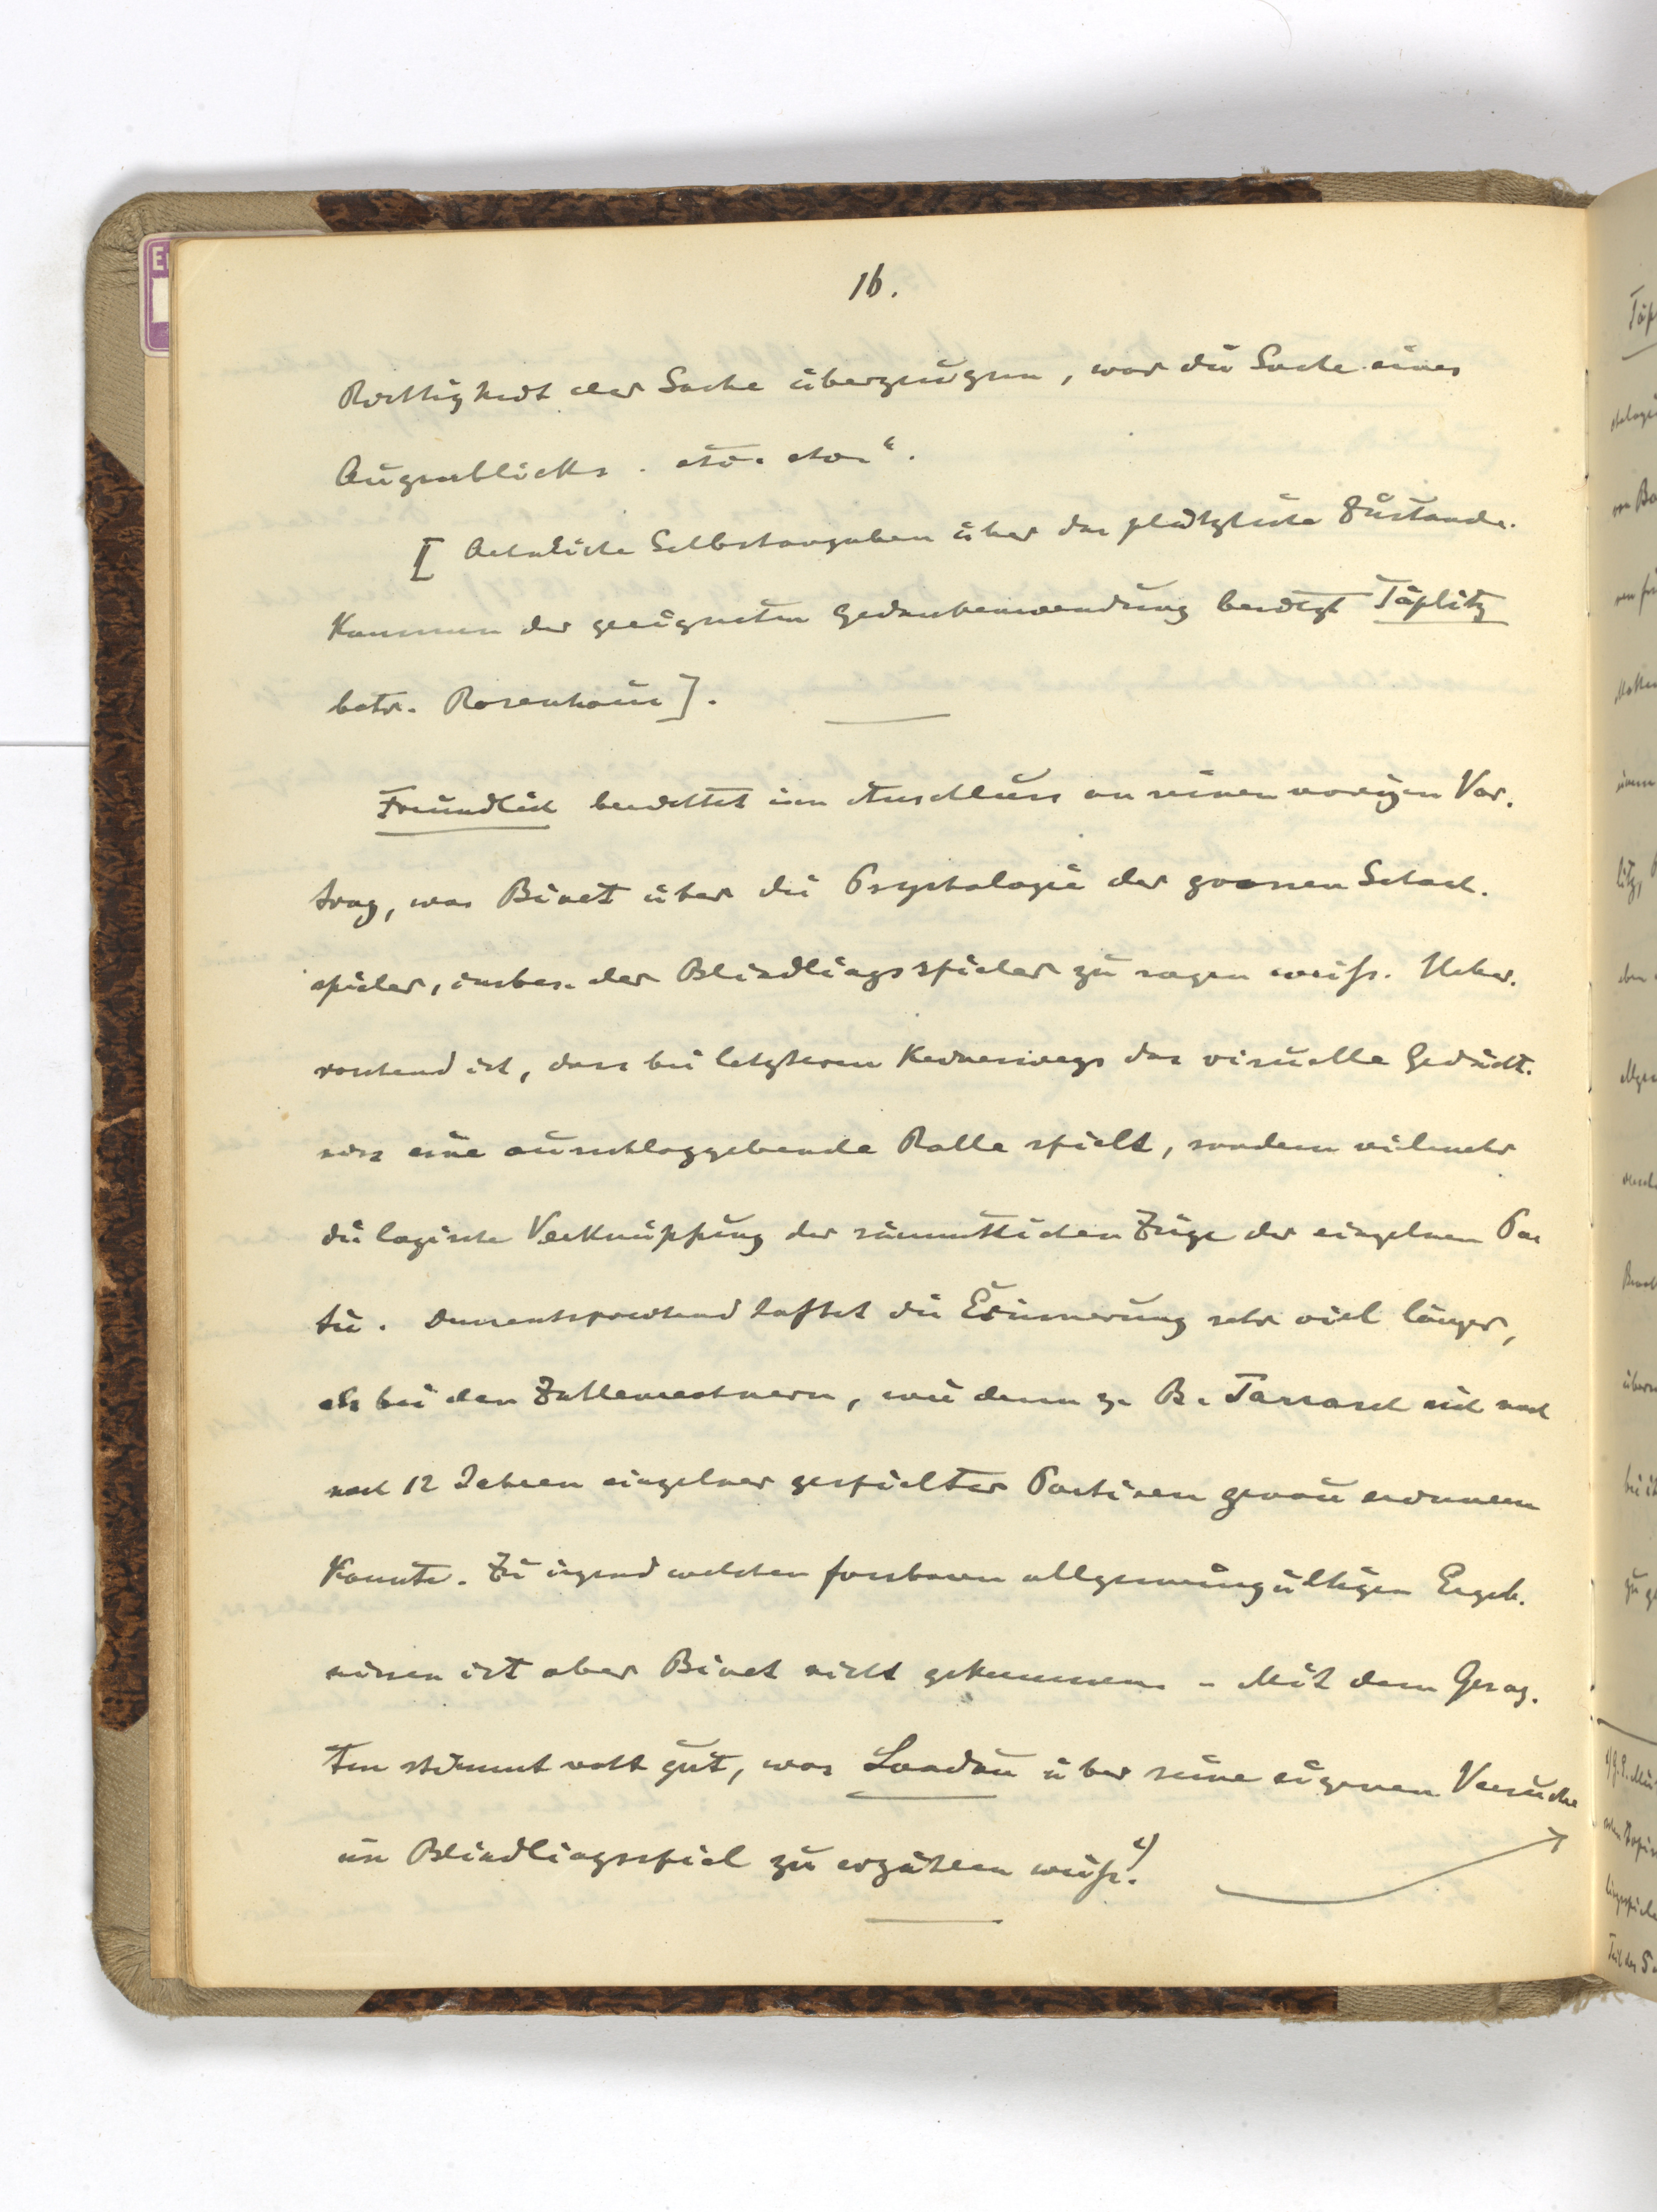 16.
Richtigkeit der Sache überzeugen, war die Sache eines
Augenblicks. etc. etc."
[Aehnliche Selbstangaben über das plötzliche Zustande-
kommen der geeigneten Gedankenwendung bringt Töplitz
betr. Rosenhain].
Freundlich berichtet im Anschluss an seinen vorigen Vor-
trag, was Binet über die Psychologie der grossen Schach-
spieler, insbes. der Blindlingsspieler zu sagen weiss. Ueber-
raschend ist, dass bei letzteren keineswegs das visuelle Gedächt-
niss eine ausschlaggebende Rolle spielt, sondern vielmehr
die logische Verknüpfung der sämmtlichen Züge der einzelnen Par
tie. Dementsprechend haftet die Erinnerung sehr viel länger,
als bei den Zahlenrechnern, wie denn z. B. Tarrasch sich noch
nach 12 Jahren einzelner gespielter Partieen genau erinnern
konnte. Zu irgend welchen fassbaren allgemeingültigen Ergeb-
nissen ist aber Binet nicht gekommen. - Mit dem Gesag-
ten stimmt recht gut, was Landau über seine eigenen Versuche
im Blindlingsspiel zu erzählen weiss.